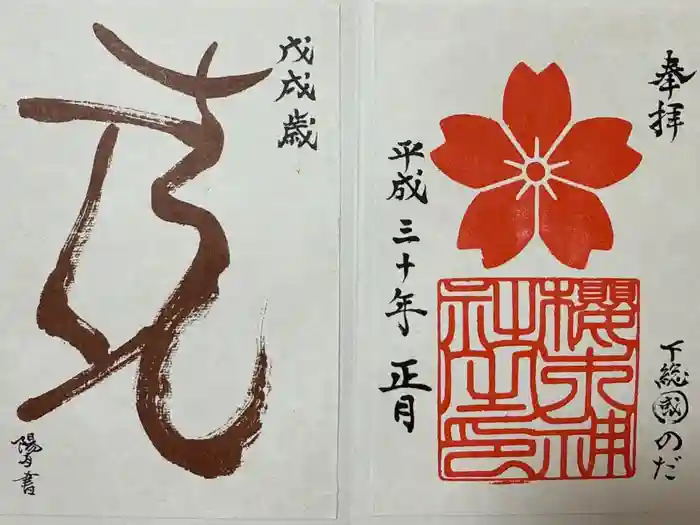 奉拝
下総国のだ
櫻木神
社之印
平成三十年 正月
戊戌歳
陽書